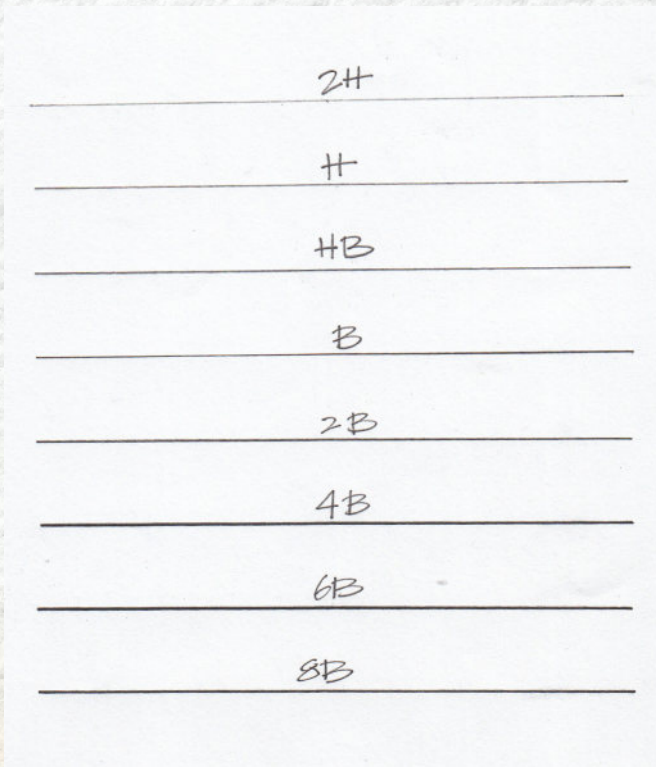 2H
H
HB
B
2B
4B
6B
8B